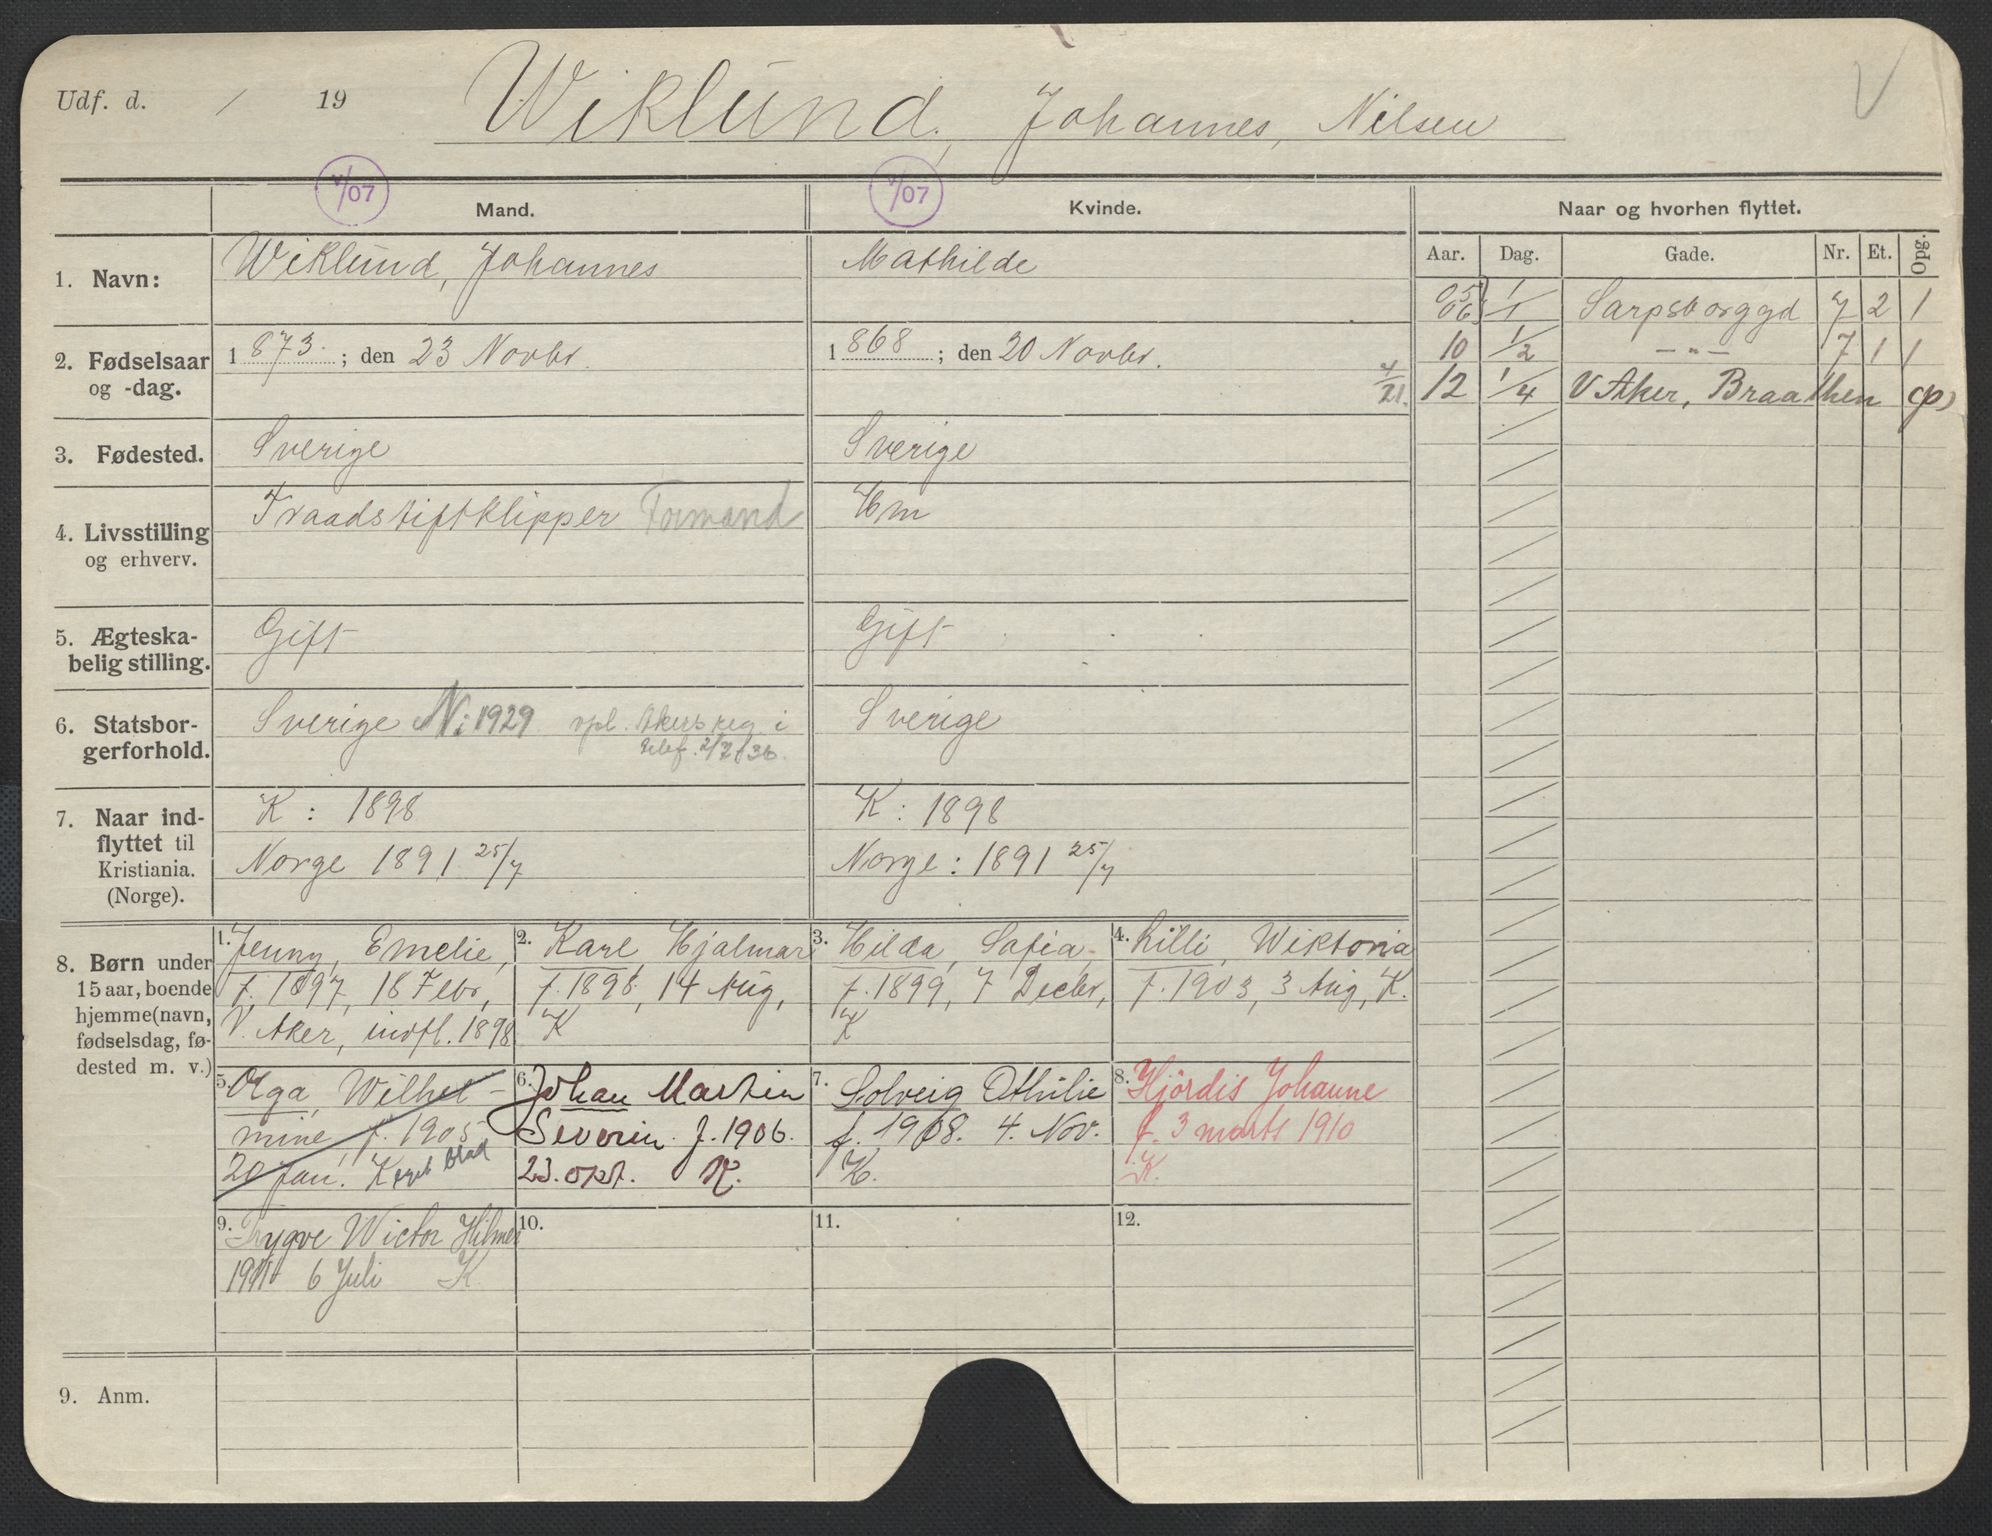 Udf. d. / 19 Wiklund, Johannes, Nilsen V
/07 /07
Mand. Kvinde. Naar og hvorhen flyttet.
Aar. Dag. Gade. Nr. Et. Opg.
1. Navn: Wiklund, Johannes Mathilde
05 06 } 1/1 Sarpsborggd 7 2 1
10 1/2 —"— 7 1 1
4/21. 12 1/4 V Aker, Braathen
2. Fødselsaar 1 873 ; den 23 Novbr. 1 868 ; den 20 Novbr.
og -dag.
3. Fødested. Sverige Sverige
4. Livsstilling Traadstiftklipper Formand Hm
og erhverv.
5. Ægteska-
belig stilling. Gift Gift
6. Statsbor-
gerforhold. Sverige N: 1929 opl. Akers reg i Sverige
telef. 2/7 36.
7. Naar ind- K: 1898 K: 1898
flyttet til
Kristiania. Norge 1891 25/7 Norge: 1891 25/7
(Norge).
8. Børn under
15 aar, boende
hjemme (navn,
fødselsdag, fø-
dested m. v.)
1. Jenny, Emelie,
f. 1897, 18 Febr,
V. Aker, indfl. 1898
2. Karl Hjalmar
f. 1898, 14 Aug,
K
3. Hilda, Sofia,
f. 1899, 7 Decbr,
K
4. Lilli, Wiktoria
f. 1903, 3 Aug, K.
5. Olga, Wilhel-
mine, f. 1905
20 Jan. K eget blad
6. Johan Martin
Severin. f. 1906.
23. okt. K.
7. Solveig Othilie
f. 1908. 4. Nov.
K.
8. Hjördis Johanne
f. 3 marts 1910
K.
9. Trygve Wictor Hilmer
1911 6 Juli K
10.
11.
12.
9. Anm.